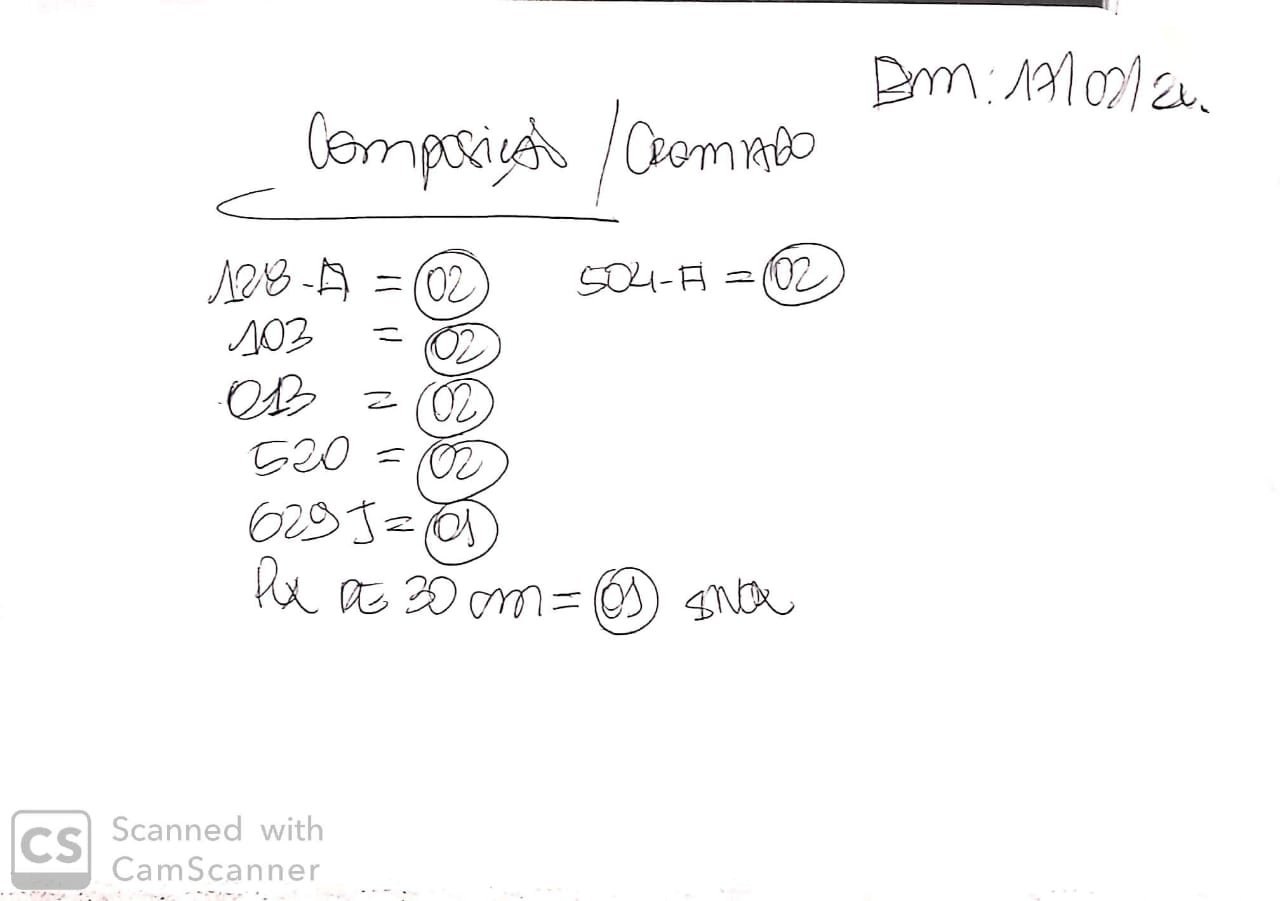 Em: 17/02/
Composição / Cromado
128-A = 02 504-A = 02
103 = 02
013 = 02
520 = 02
629 J = 01
DE 30 cm = 01
CS Scanned with
CamScanner